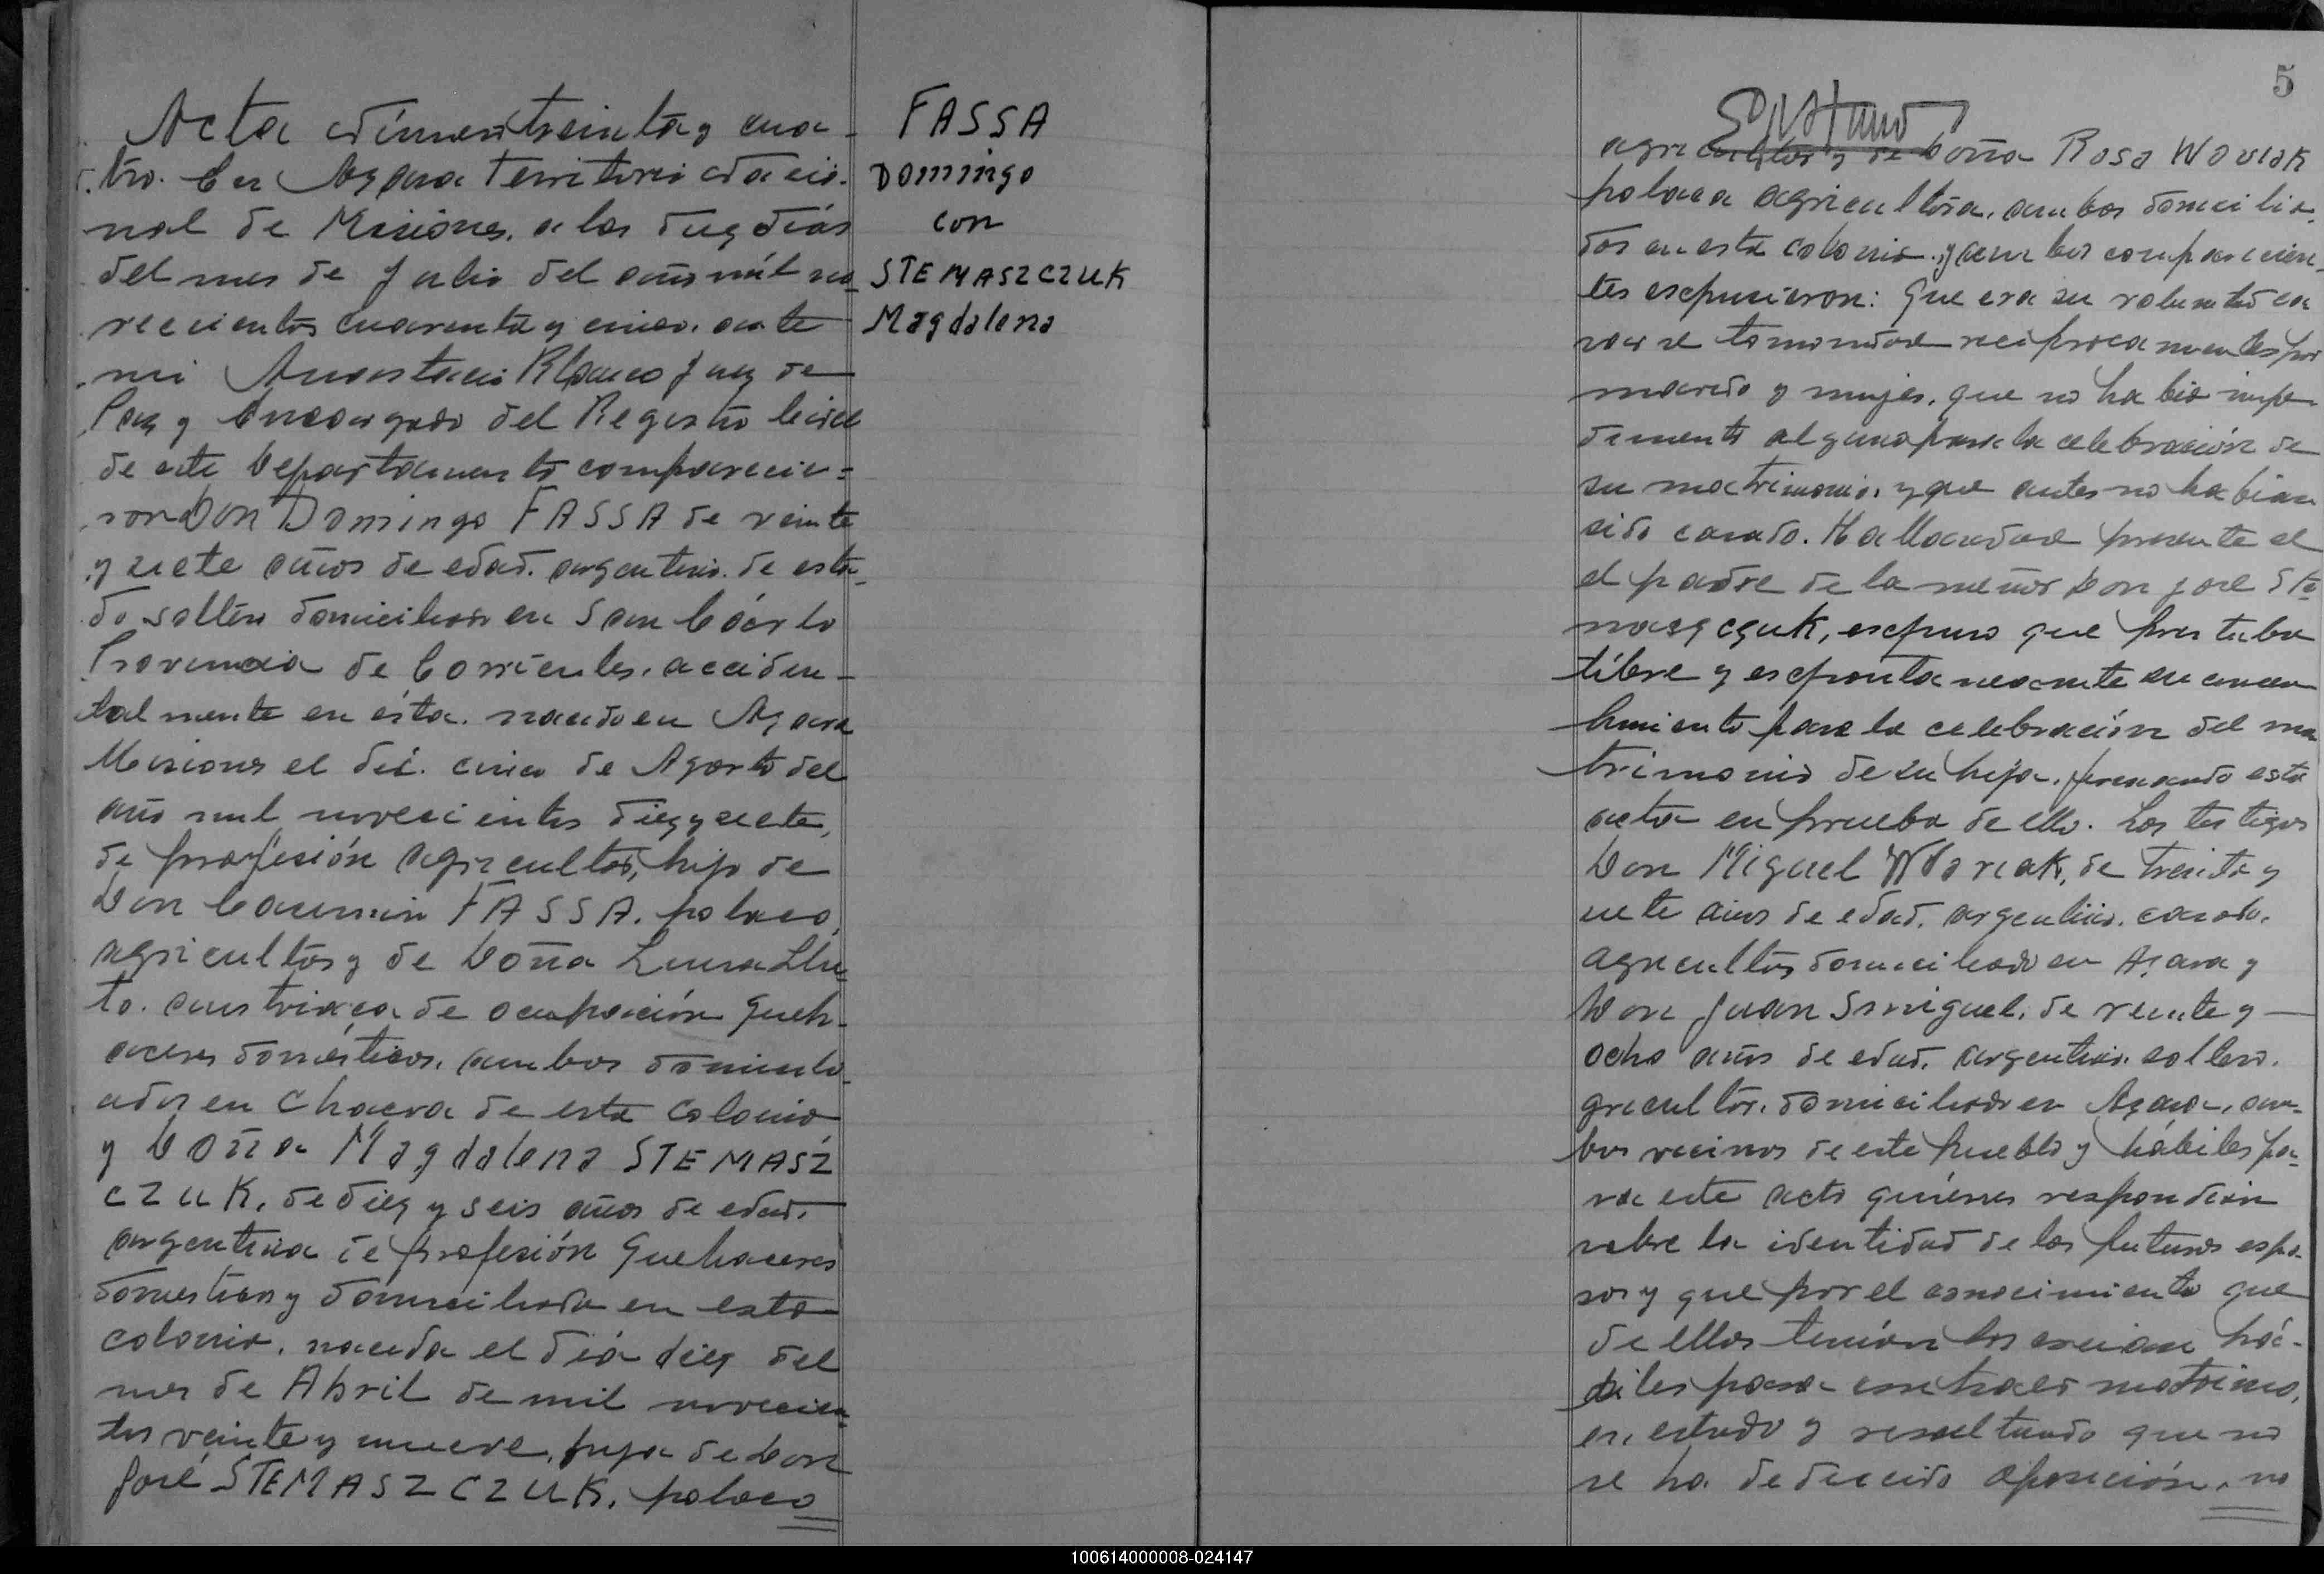 Acta número treinta y cua-
tro. En Azara Territorio Nacio-
nal de Misiones, a los diez dias
del mes de Julio del año mil no-
vecientos cuarenta y cinco, ante
mi Anastacio Blanco Juez de
Paz y Encargado del Registro Civil
de este Departamento comparecie=
ron Don Domingo FASSA de veinte
y siete años de edad, argentino, de esta-
do soltero domiciliado en San Cárlo
Provincia de Corrientes, acciden-
talmente en ésta, nacido en Azara
Misiones el día cinco de Agosto del
año mil novecientos diez y siete,
de profesión agricultor, hijo de
Don Casimiro FASSA, polaco,
agricultor y de Doña
austriaca de ocupación queh-
aceres domésticos, ambos domicili-
ados en Chacra de esta Colonia
y Doña Magdalena STEMASZ
CZUK, de diez y seis años de edad,
argentina de profesión Quehaceres
domesticos y domiciliada en esta
colonia, nacida el día diez del
mes de Abril de mil novecien=
tos veinte y nueve, hija de Don
José STEMASZCZUK, polaco
FASSA
Domingo
con
STEMASZCZUK
Magdalena
5
agricultor y de Doña Rosa WOVIAK
polaca agricultora, ambos domicilia-
dos en esta colonia, y ambos comparecien-
tes expusieron: Que era su voluntad ca
sarse tomandose reciprocamente por
marido y mujer, que no habia impe
dimento alguno para la celebración de
su matrimonio, y que antes no habian
sido casado. Hallandose presente el
el padre de la menor Don José Ste
maszczuk, expuso que prestaba
libre y espontaneamente su concen
timiento para la celebración del ma
trimonio de su hija, firmando esta
acta en prueba de ello. Los testigos
Don Miguel Woviak, de treinta y
siete años de edad, argentino, casado,
agricultor domiciliado en Azara y
Don Juan Smiguel, de veinte y
ocho años de edad, argentino, soltero,
gricultor, domiciliado en Azara, am-
bos vecinos de este Pueblo y hábiles pa-
ra este acto quienes respondian
sobre la identidad de los futuros espo-
sos y que por el conocimiento que
de ellos tenian los creian há-
biles para contraer matrimo,
en, estado y resultando que no
se ha deducido oposición, no
100614000008-024147